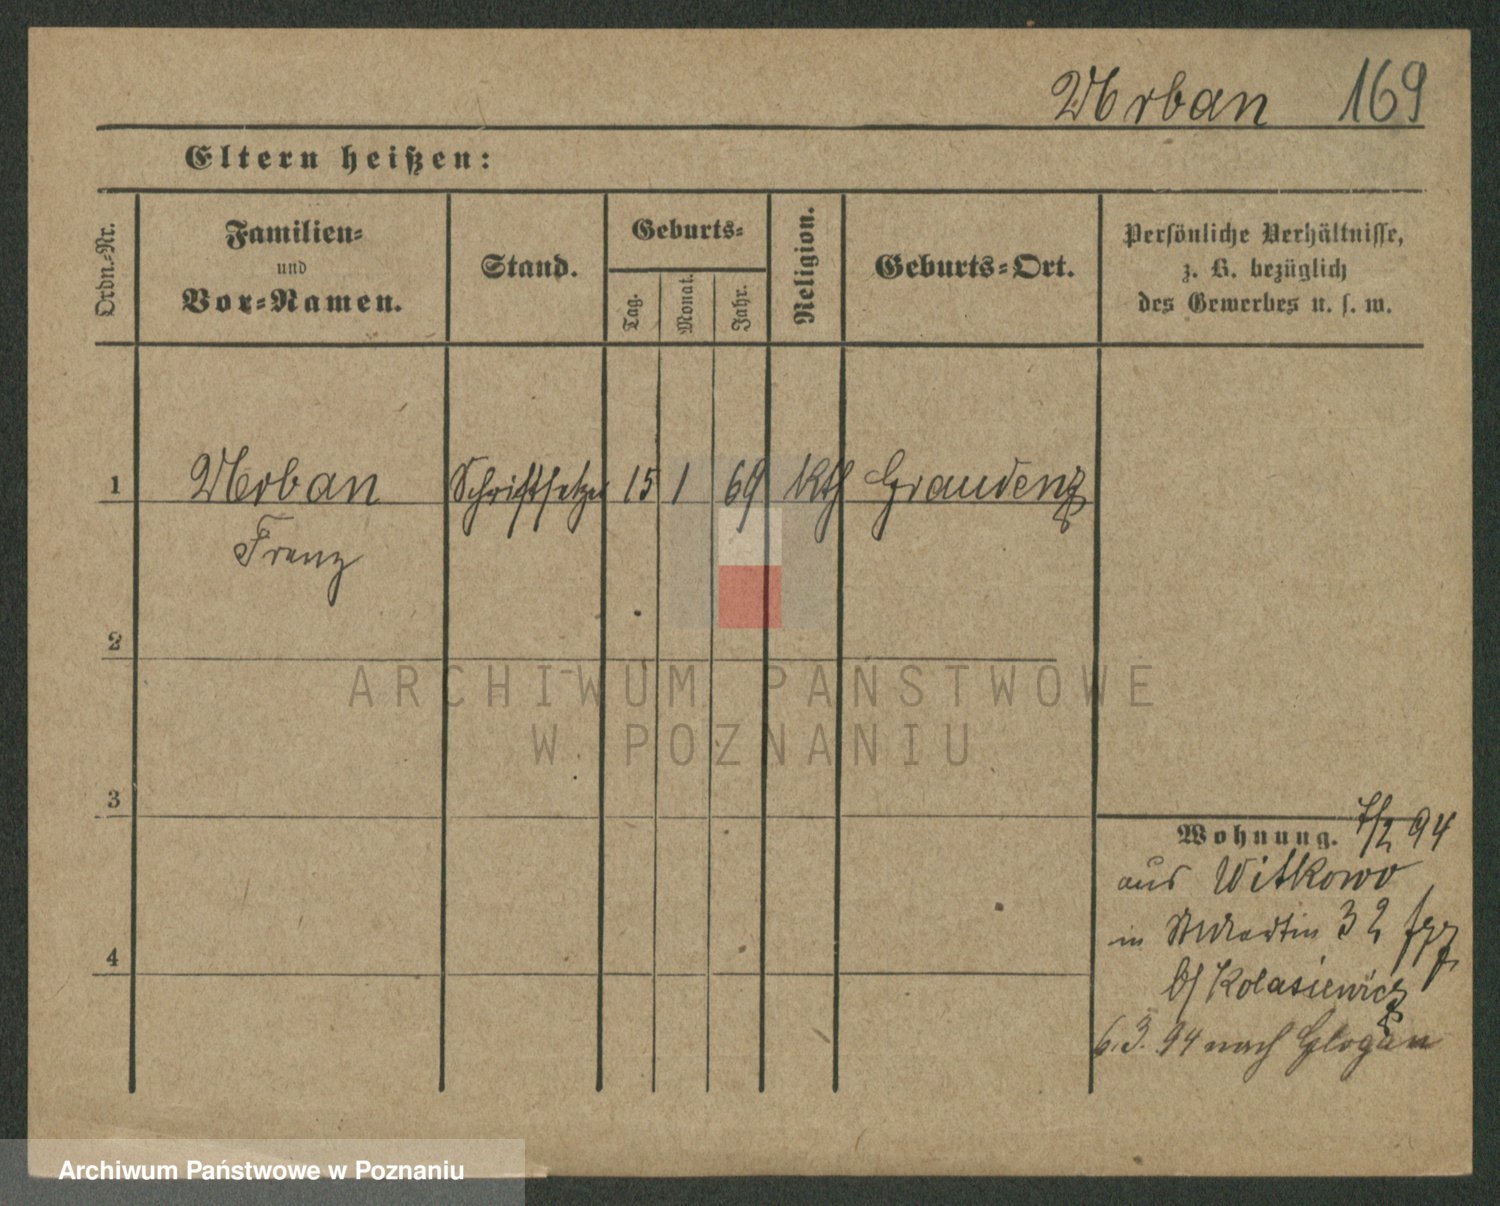 Urban 169
Eltern heißen:
Ordn.-Nr.
Familien-
und
Vor-Namen.
Stand.
Geburts-
Tag.
Monat.
Jahr.
Religion.
Geburts-Ort.
Persönliche Verhältnisse,
z. B. bezüglich
des Gewerbes u. s. w.
1 Urban Schriftsetzer 15 1 69 Kth Graudenz
Franz
2
3
4
Wohnung. 7/2 94
aus Witkowo
in St Martin 32
b/ Kolasiewicz
6.3.94 nach Glogau
ARCHIWUM PAŃSTWOWE
W POZNANIU
Archiwum Państwowe w Poznaniu